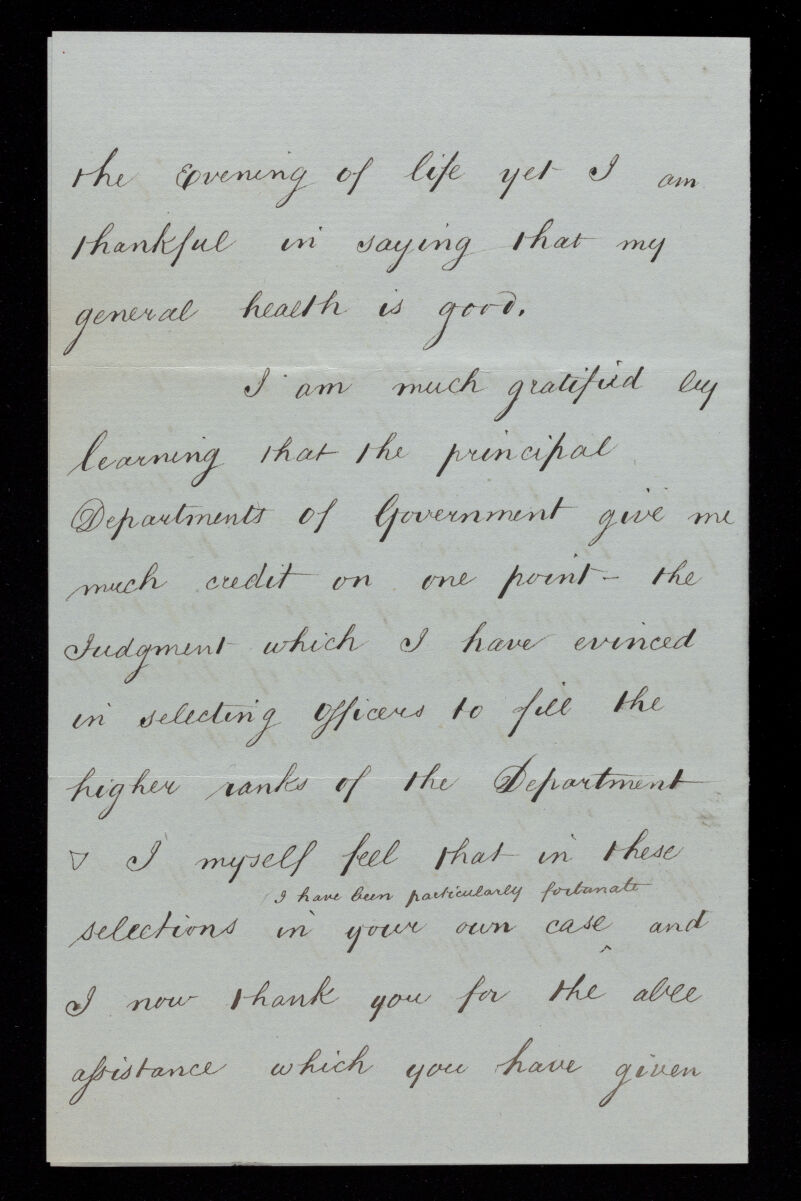 the Evening of life yet I am
thankful in saying that my
general health is good.
I am much gratified by
learning that the principal
Departments of Government give me
much credit on one point - the
Judgment which I have evinced
in selecting Officers to fill the
higher ranks of the Department
& I myself feel that in these
I have been particularly fortunate
selections in your own case ^ and
I now thank you for the able
assistance which you have given